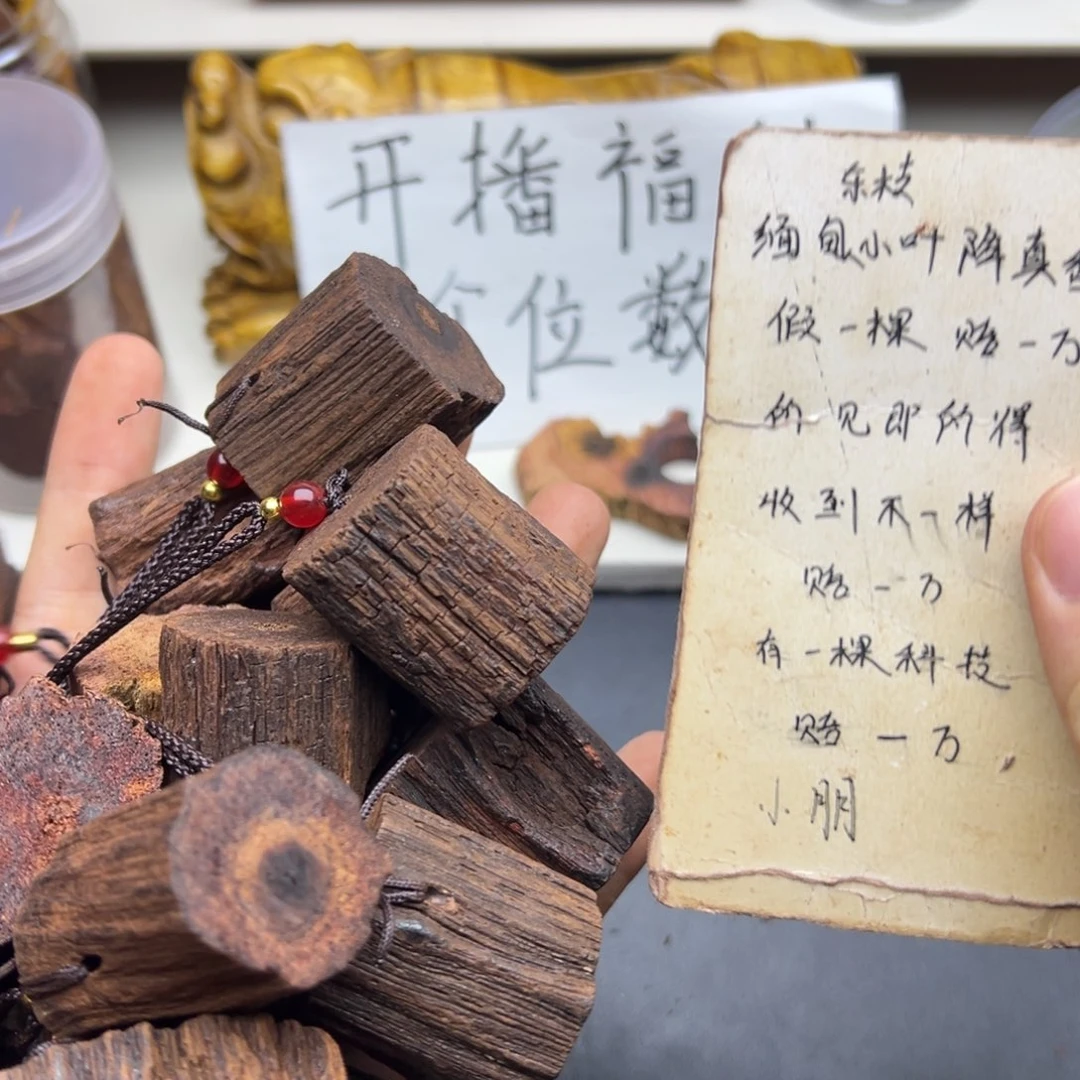 开播福
位数
乐枝
缅甸小叶降真香
假一棵 赔一万
所见即所得
收到不一样
赔一万
有一棵科技
赔一万
小朋